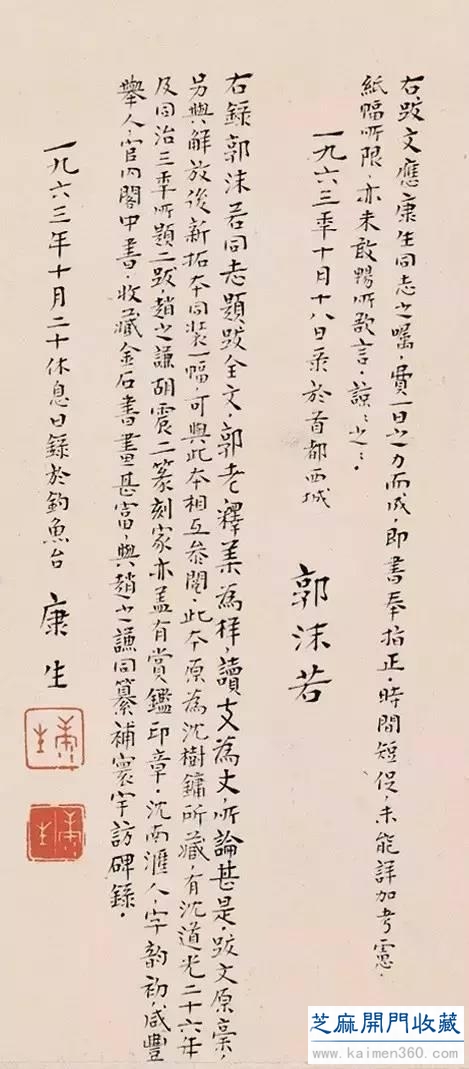 右跋文應康生同志之囑，費一日之力而成，即書奉指正。時間短促，未能詳加考慮，
紙幅所限，亦未敢暢所欲言，諒之諒之。
一九六三年十月十八日录於首都西城
郭沫若
右錄郭沫若同志題跋全文，郭老釋羕為样，讀攴為丈，所論甚是，跋文原稾，
另與解放後新拓本同装一幅，可與此本相互參閱，此本原為沈樹鏞所藏，有沈道光二十六年
及同治三年所題二跋，趙之謙胡震二篆刻家亦盖有賞鑑印章，沈南滙人，字韵初，咸豐
舉人，官内閣中書，收藏金石書畫甚富，與趙之謙同纂補寰宇訪碑錄。
一九六三年十月二十休息日錄於釣魚台
康生
康生
康生
芝麻開門收藏
www.kaimen360.com